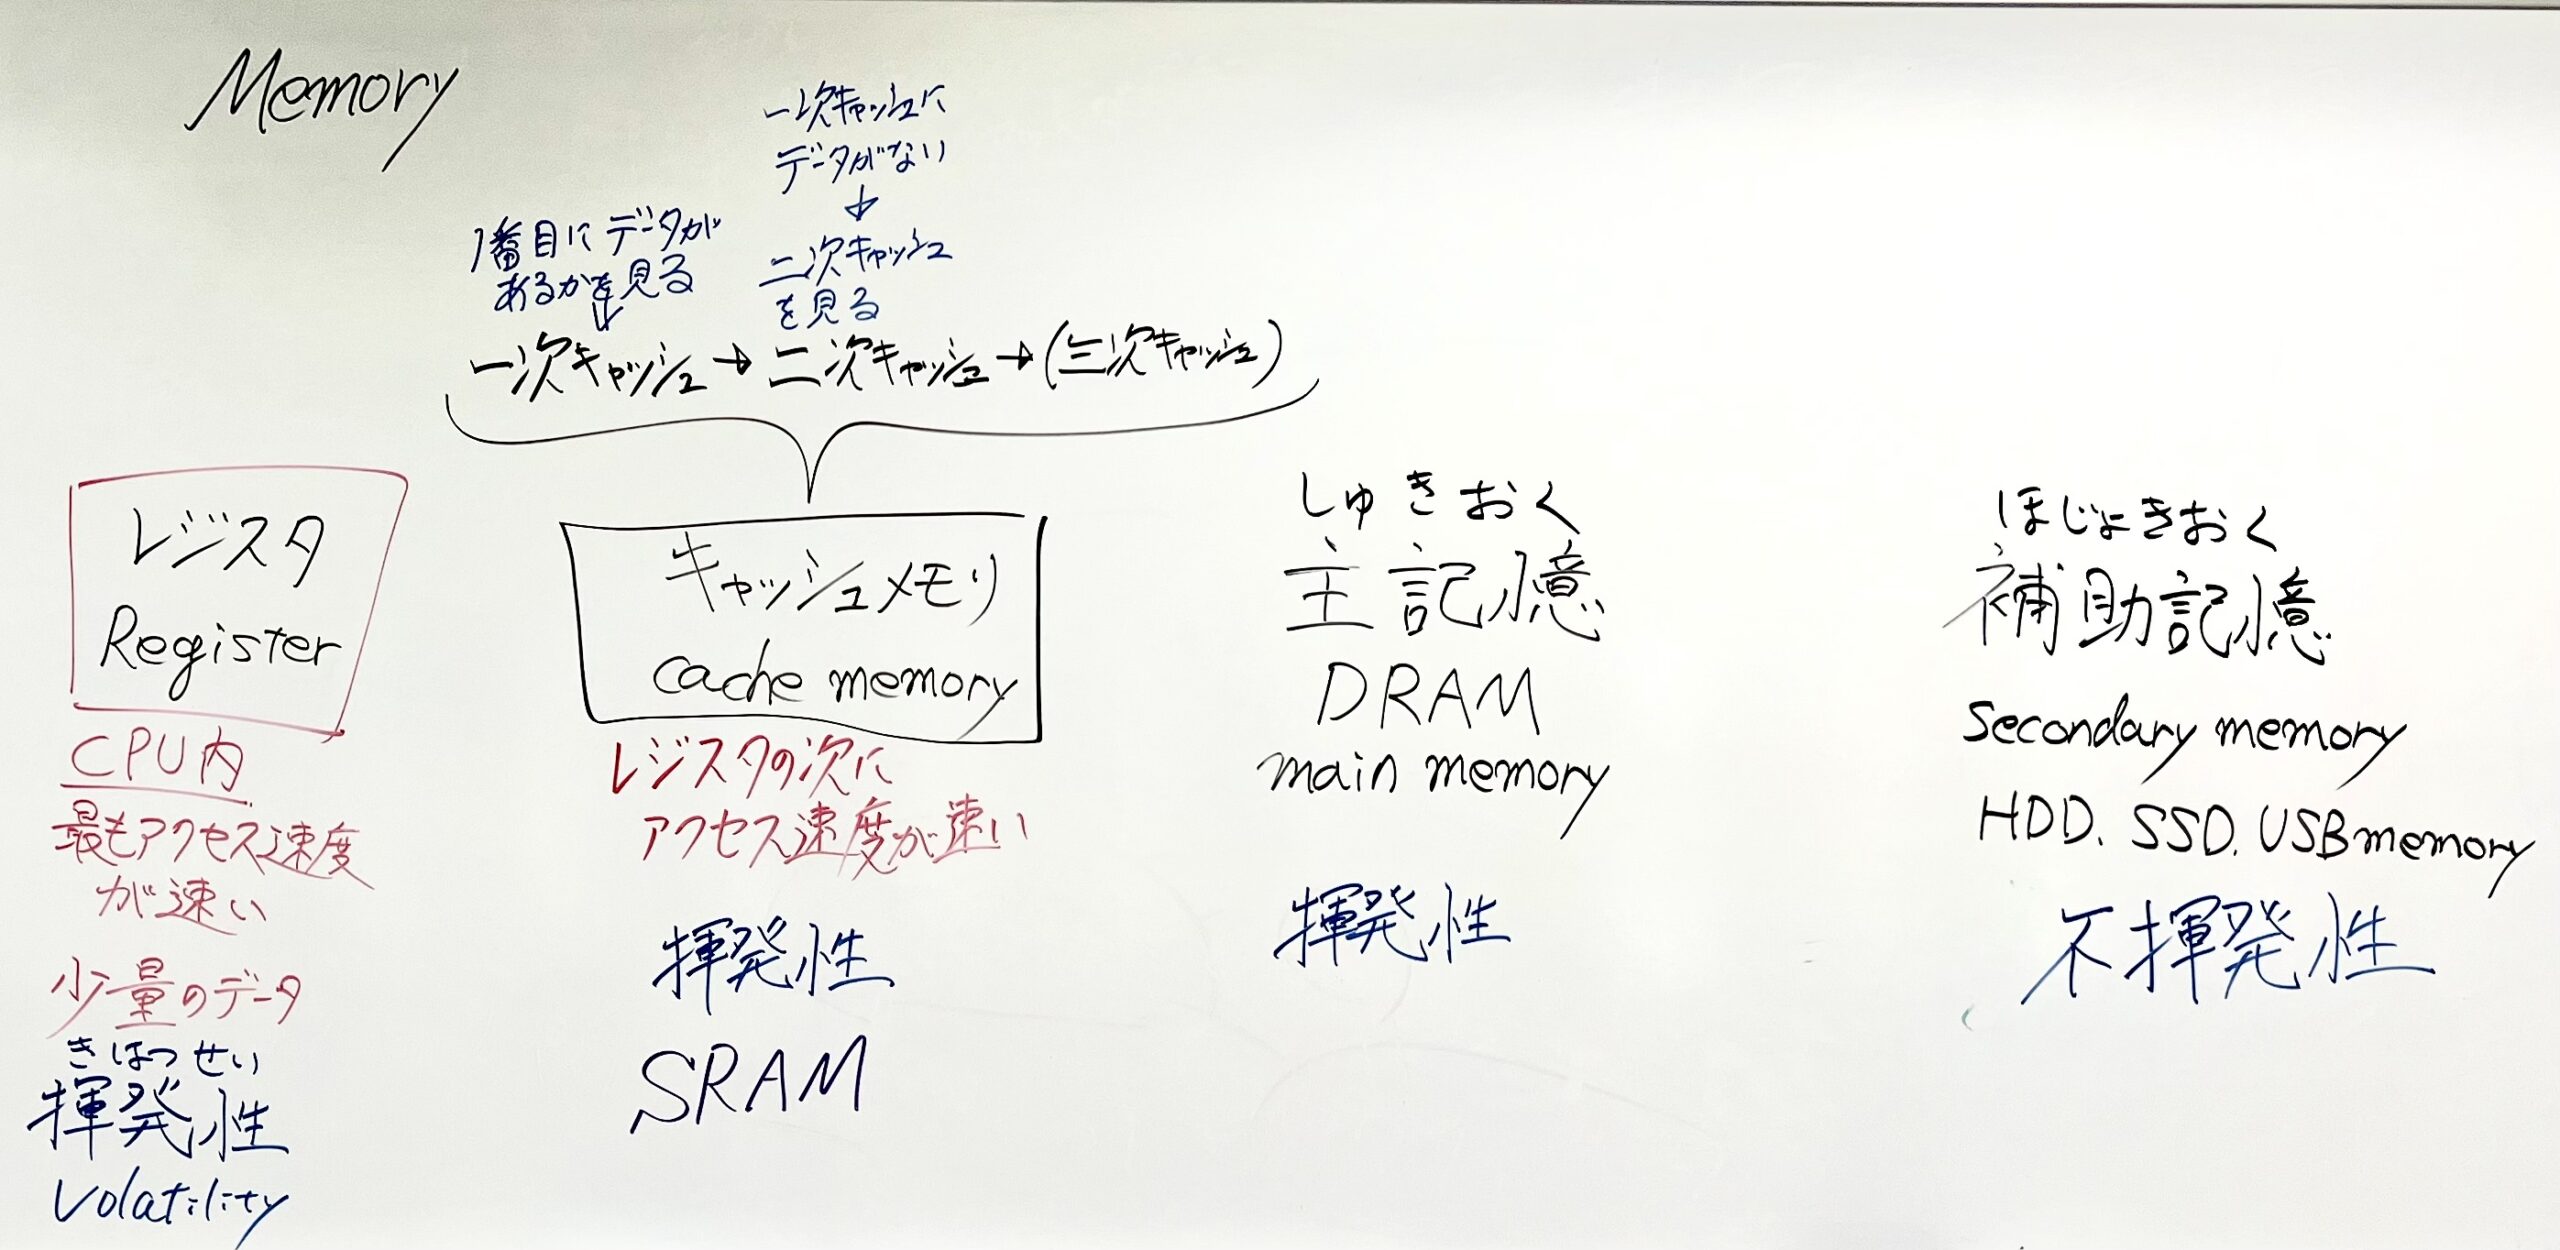 Memory
一次キャッシュに
データがない
↓
二次キャッシュ
を見る
1番目にデータが
あるかを見る
↓
一次キャッシュ→二次キャッシュ→(三次キャッシュ)
レジスタ
Register
CPU内
最もアクセス速度
が速い
少量のデータ
きはつせい
揮発性
Volatility
キャッシュメモリ
cache memory
レジスタの次に
アクセス速度が速い
揮発性
SRAM
しゅきおく
主記憶
DRAM
main memory
揮発性
ほじょきおく
補助記憶
Secondary memory
HDD. SSD. USB memory
不揮発性